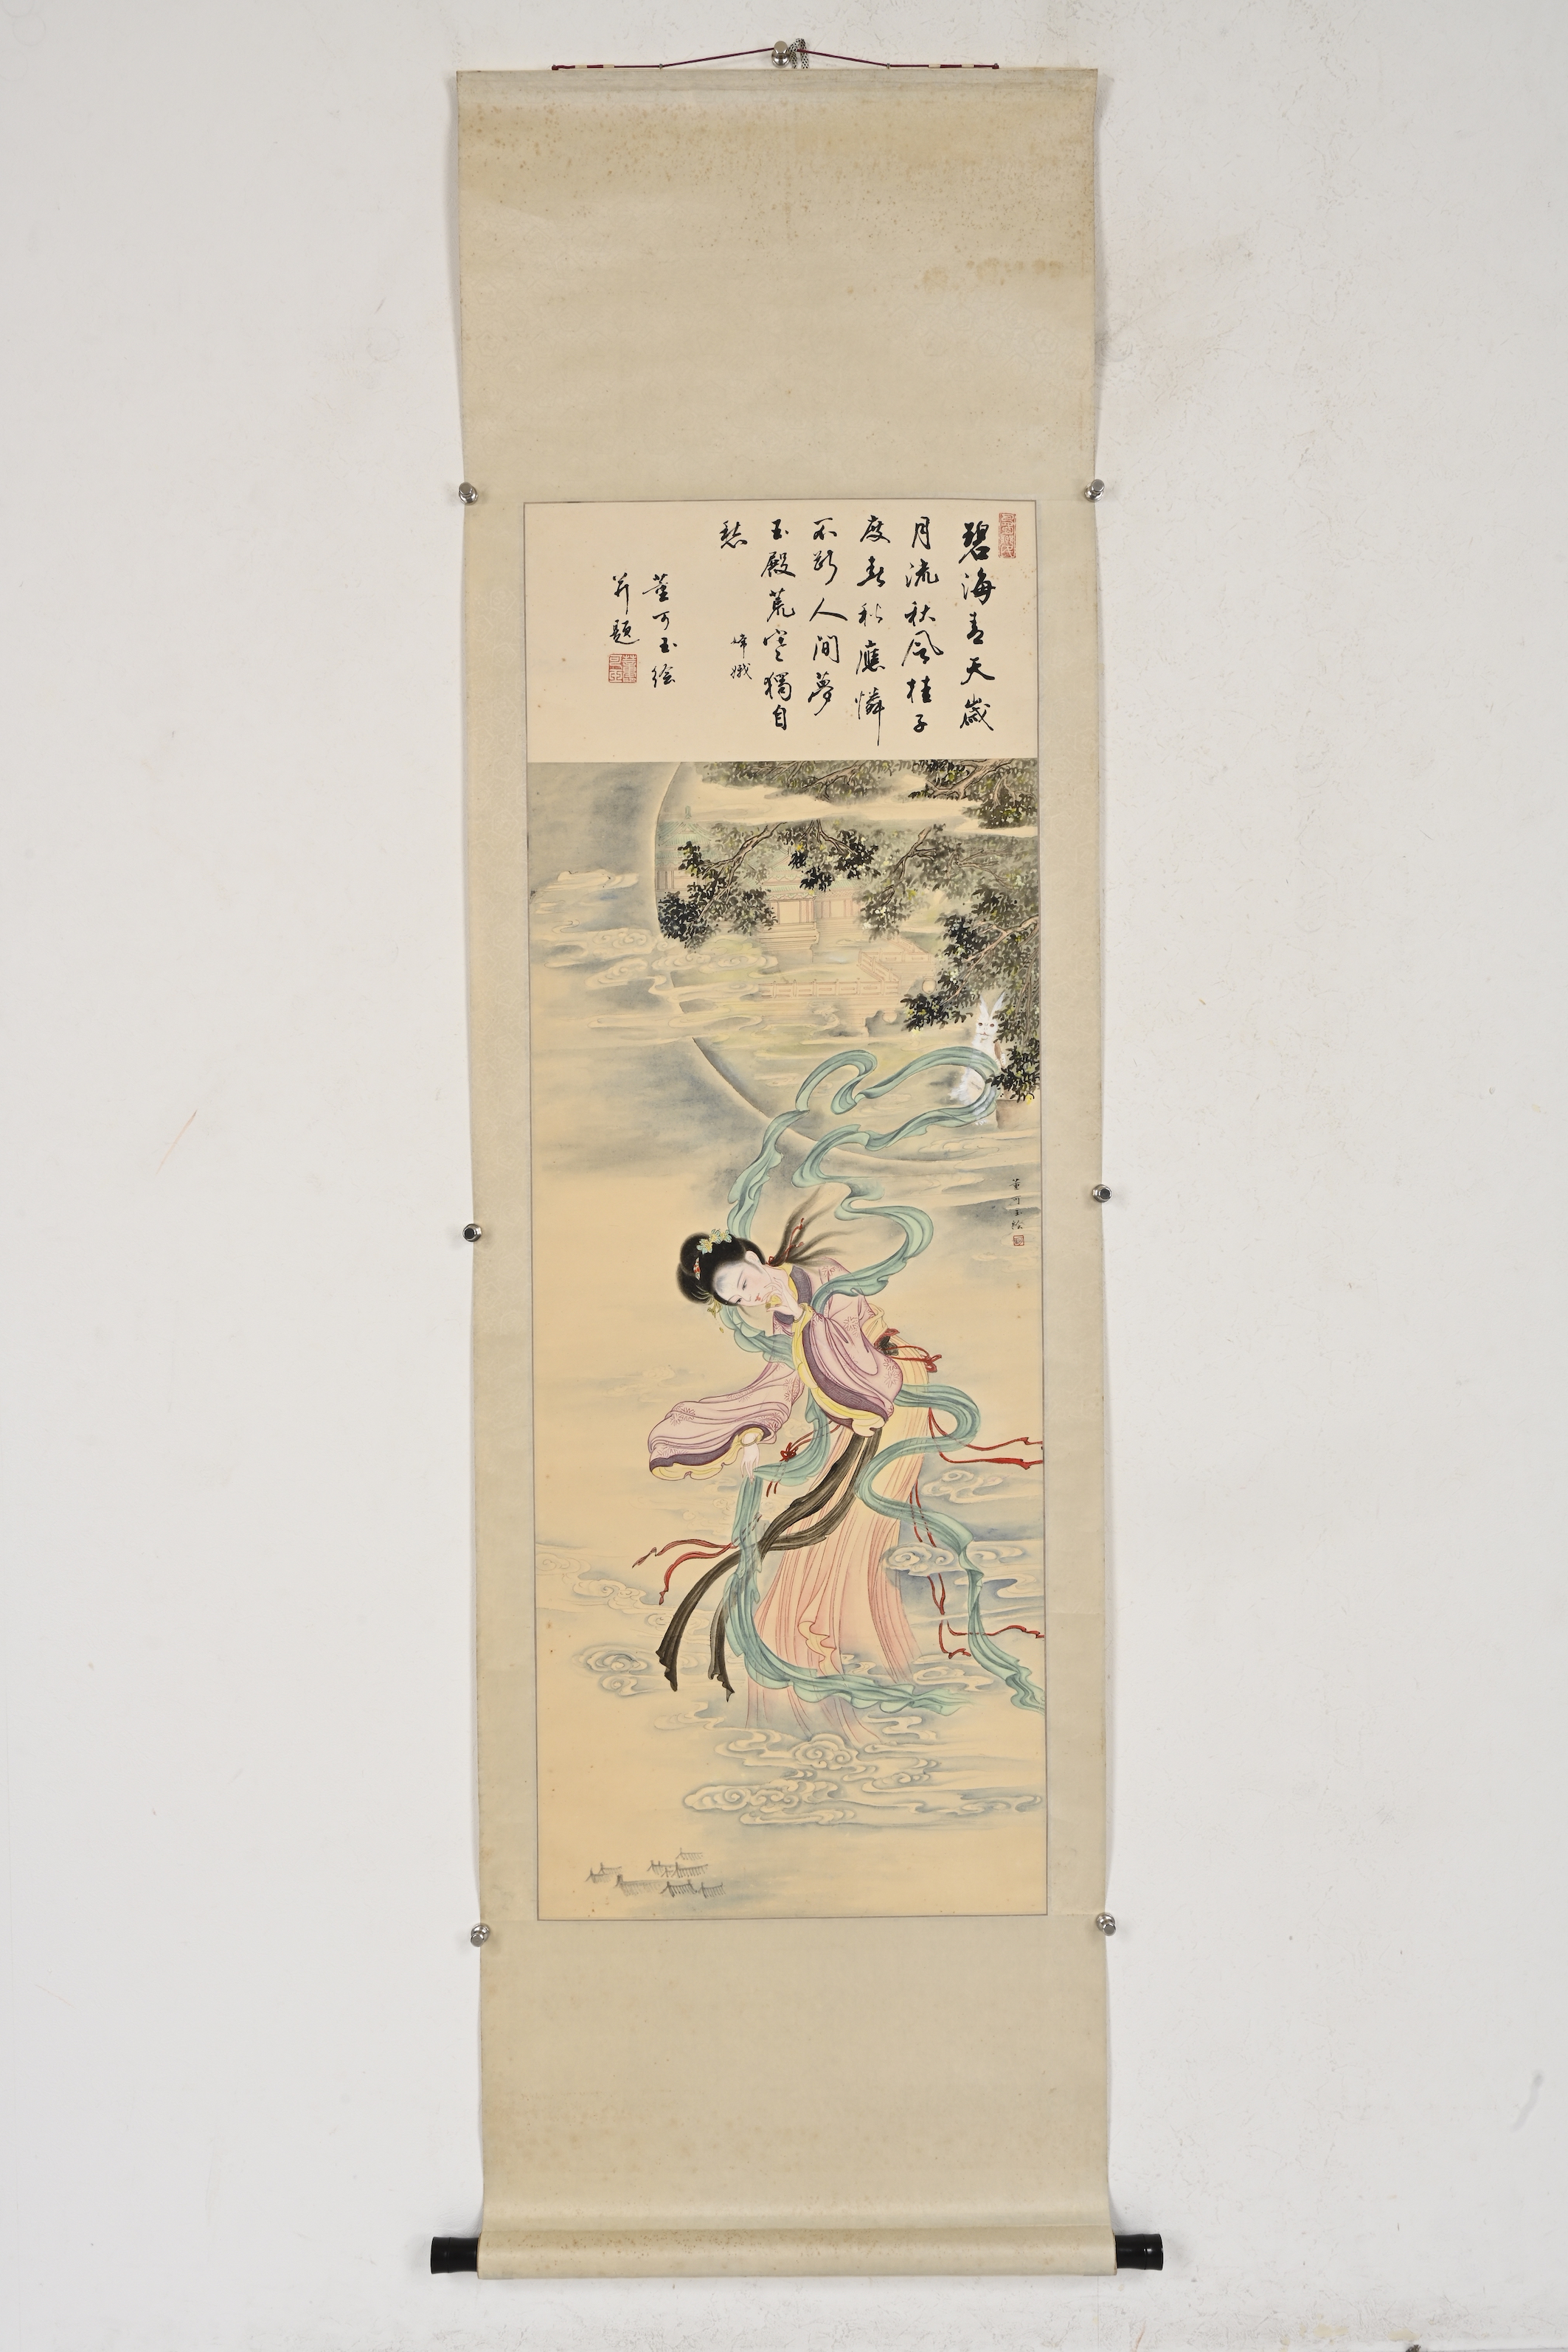 碧海青天歲
月流秋風桂子
度春秋應憐
不斷人間夢
玉殿荒寒獨自
愁
嫦娥
董可玉繪
并題
董可玉繪